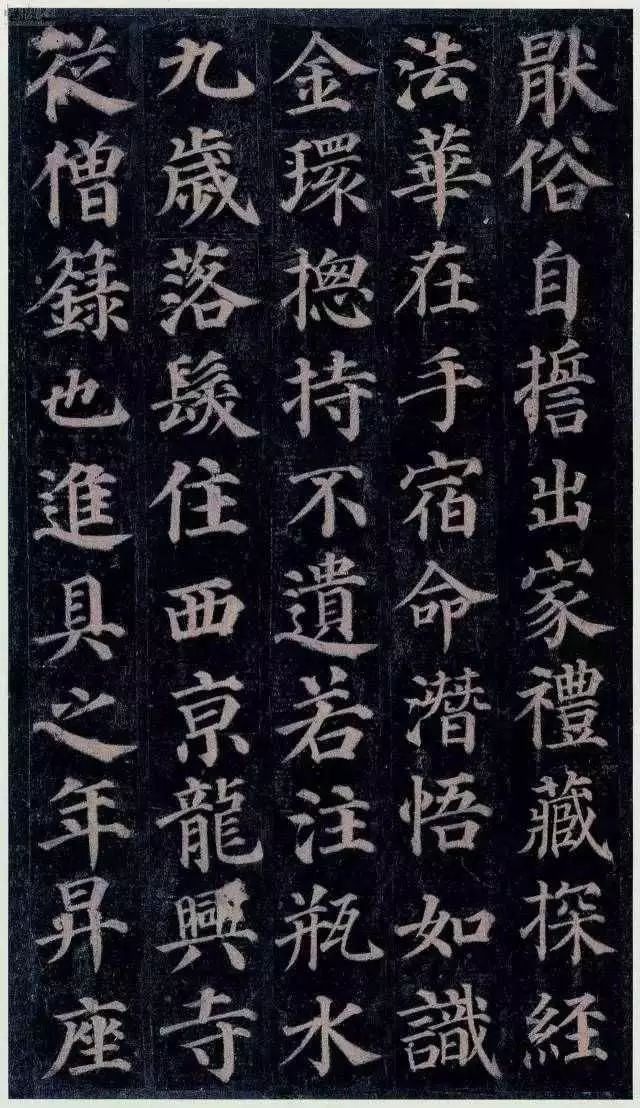 猒俗自搢出家禮藏探經
法華在手宿命潛悟如識
金環揔持不遺若注瓶水
九歲落髮住西京龍興寺
從僧籙也進具之年昇座